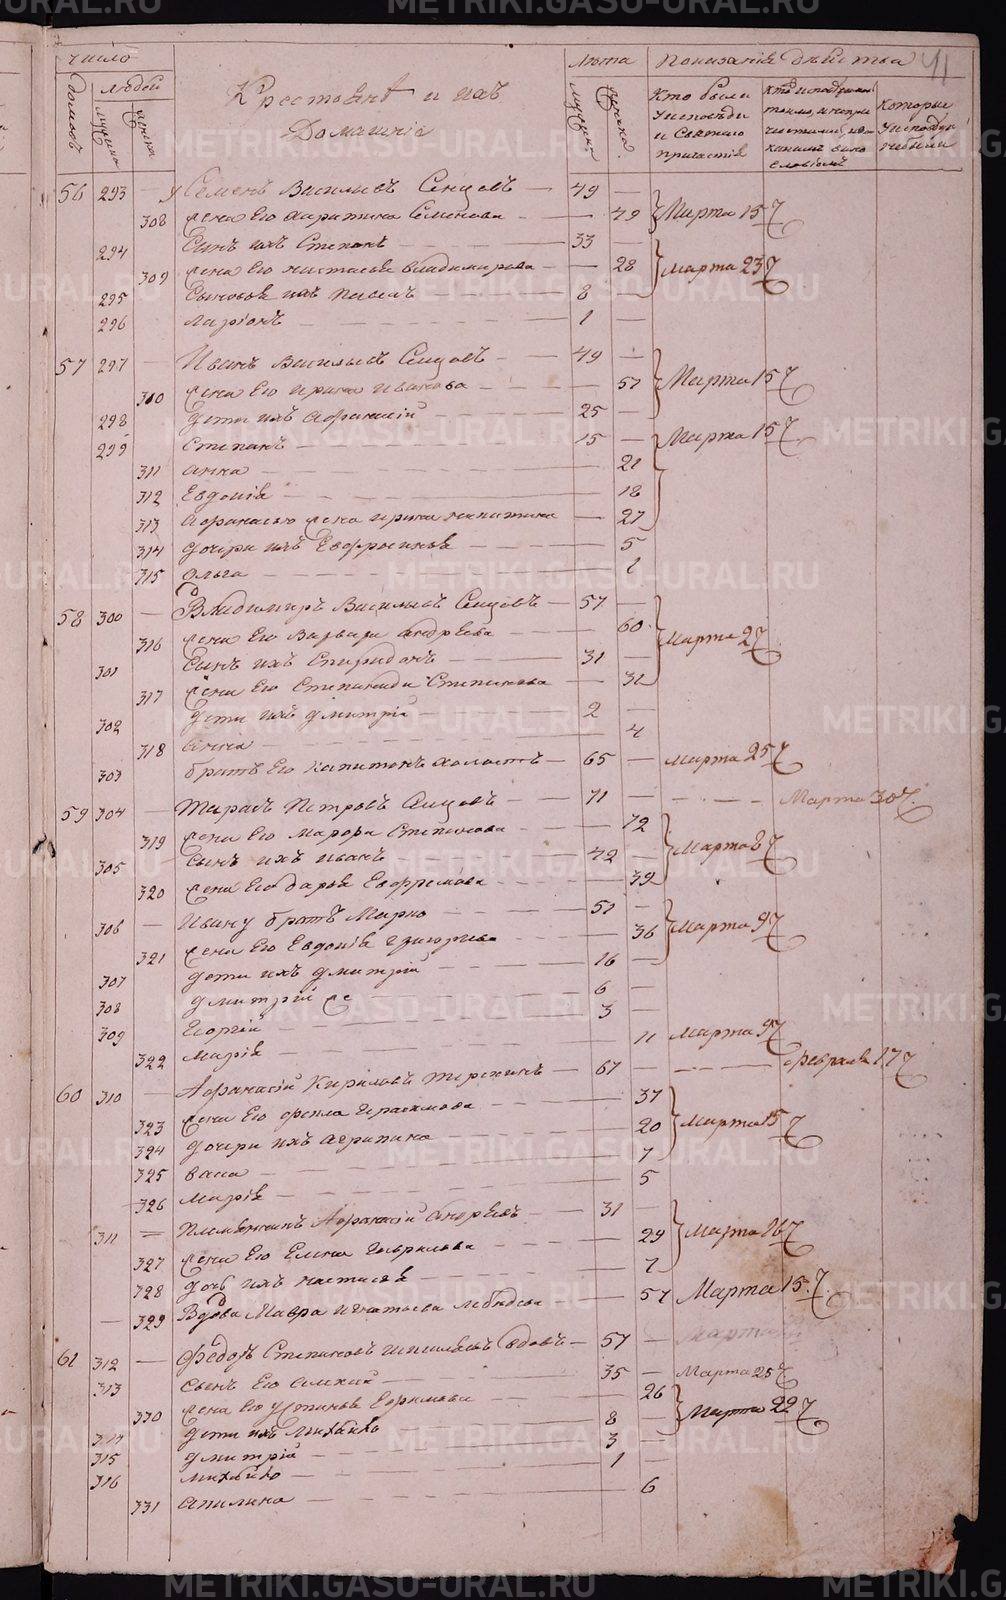 METRIKI.GASO-URAL.RU
41
Число
Лѣта
Показанія дѣйства
домовъ
людей
мужеска
женска
Крестьянъ и ихъ
Домашніе
мужеска
женска
Кто были
У исповѣди
и Святаго
причастія
Которые
У исповѣди
не были
56 293 — Семенъ Васильевъ Сенцовъ — 49 —
308 жена Его Харитина Семенова — 49 Марта 15
294 Сынъ ихъ Степанъ — 33 —
309 жена Его Настасья Владимирова — 28 Марта 23
295 Сыновья ихъ Павелъ — 8 —
296 Ларіонъ — 1 —
57 297 — Иванъ Васильевъ Сенцовъ — 49 —
310 жена Его Ирина Иванова — 51 Марта 15
298 Дети ихъ Афанасій — 25 —
299 Степанъ — 15 — Марта 15
311 Анна — 21
312 Евдокія — 18
313 Афанасью жена Ирина Никитина — 27
314 дочери ихъ Евфросинья — 5
315 Ольга — 1
58 300 — Владимиръ Васильевъ Сенцовъ — 57 —
316 жена Его Варвара Андреева — 60 Марта 2
301 Сынъ ихъ Спиридонъ — 31 —
317 жена Его Степанида Степанова — 32
302 Дети ихъ Дмитрій — 2 —
318 Анна — 4
303 братъ Его Капитонъ холостъ — 65 — Марта 25
59 304 — Тарасъ Петровъ Сенцовъ — 71 — Марта 30
319 жена Его Марфа Степанова — 72
305 Сынъ ихъ Иванъ — 42 Марта 8
320 жена Его Дарья Ефремова — 39
306 — Ивану братъ Марко — 51 —
321 жена Его Евдокія Григорьева — 36 Марта 9
307 Дети ихъ Дмитрій — 16 —
308 Дмитрій же — 6 —
309 Георгій — 3 —
322 Марія — 11 Марта 9
60 310 — Афанасій Кириловъ Терехинъ — 67 — Февраля 17
323 жена Его Фекла Герасимова — 37
324 дочери ихъ Агрипина — 20 Марта 15
325 Васа — 7
326 Марія — 5
311 — Племянникъ Афанасій Андреевъ — 31 —
327 жена Его Елена Гаврилова — 29 Марта 16
328 дочь ихъ Настасья — 7
— 329 Вдова Мавра Игнатьева Лебедева — 57 Марта 15
61 312 — Федоръ Степановъ вдовъ — 57 — Марта
313 Сынъ Его — 35 — Марта 25
330 жена Его Устинья Ефимова — 26
314 Дети ихъ Михайло — 8 — Марта 22
315 Дмитрій — 3 —
316 Михайло — 1 —
331 Апилина — 6